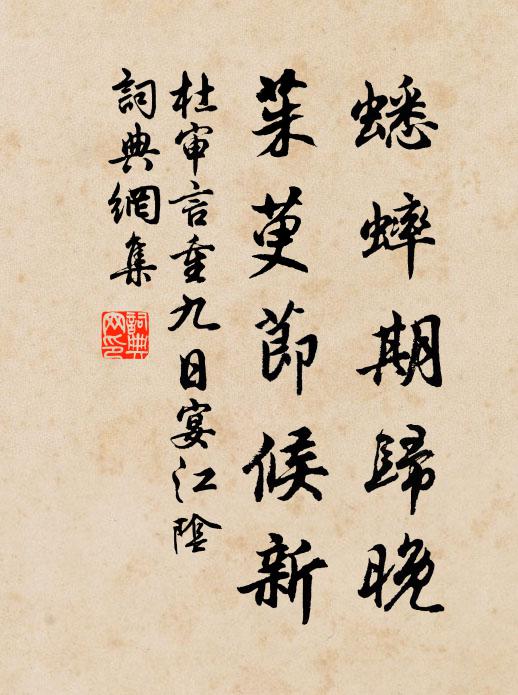 蟋蟀期歸晚
茱萸節候新
杜審言重九日宴江陰
詞典網集
詞典網印